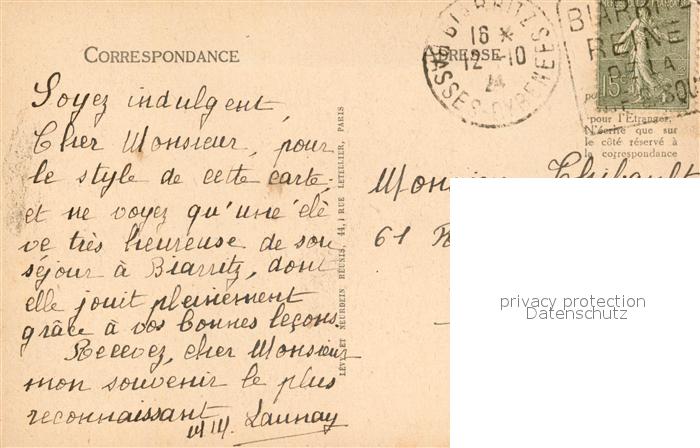 CORRESPONDANCE
Soyez indulgent,
Cher Monsieur, pour
le style de cette carte,
et ne voyez qu'une élè
ve très heureuse de son
séjour à Biarritz, dont
elle jouit pleinement
grâce à vos bonnes leçons.
Recevez, cher Monsieur
mon souvenir le plus
reconnaissant
M. Launay
LÉVY ET NEURDEIN RÉUNIS, 44, RUE LETELLIER, PARIS
ADRESSE
BIARRITZ
16 *
12 -10
24
BASSES-PYRENEES
BIARRITZ
REINE
DE LA
15
pour l'Etranger.
N'écrire que sur
le côté réservé à
la correspondance
Monsieur Thibault
61
privacy protection
Datenschutz